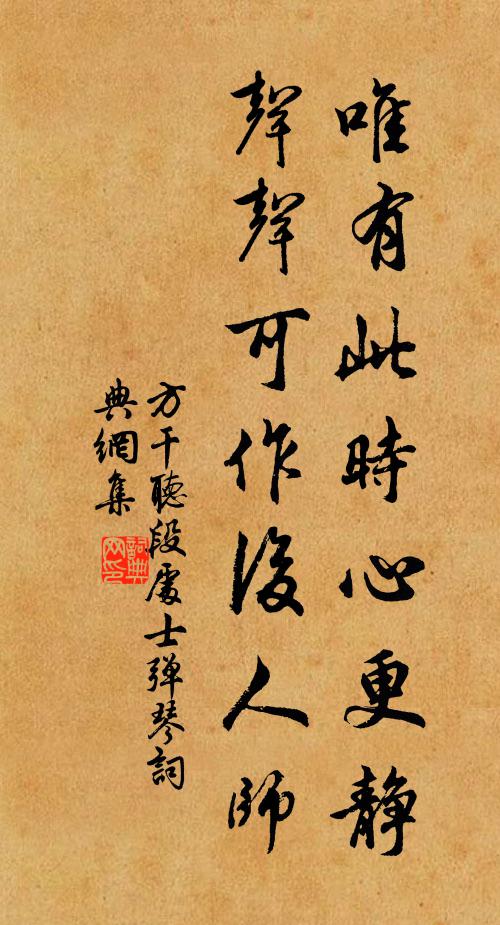 唯有此時心更静
聲聲可作後人師
方干聽段處士弹琴詞
典網集
詞典网印